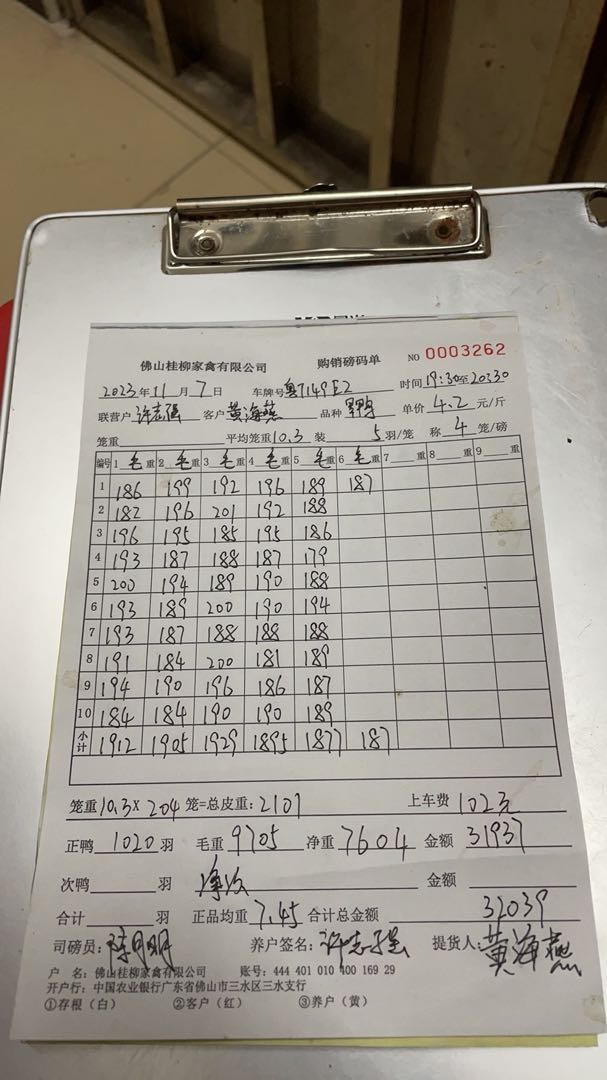 佛山桂柳家禽有限公司 购销磅码单 NO 0003262
2023年11月7日 车牌号粤T149E2 时间19:30至20:30
联营户 许志强 客户 黄海燕 品种 单价 4.2 元/斤
笼重 平均笼重10.3 装 5 羽/笼 称 4 笼/磅
编号 1 毛重 2 毛重 3 毛重 4 毛重 5 毛重 6 毛重 7 重 8 重 9 重
1 186 199 192 196 189 187
2 182 196 201 192 188
3 196 195 185 195 186
4 193 187 188 187 179
5 200 194 189 190 188
6 193 189 200 190 194
7 193 187 188 188 188
8 191 184 200 181 189
9 194 190 196 186 187
10 184 184 190 190 189
小计 1912 1905 1929 1895 1877 187
笼重10.3×204笼=总皮重:2101 上车费 102元
正鸭 1020 羽 毛重 9705 净重 7604 金额 31937
次鸭 羽 金额
合计 羽 正品均重 7.45 合计总金额 32039
司磅员: 养户签名:许志强 提货人:黄海燕
户 名:佛山桂柳家禽有限公司 账号:444 401 010 400 169 29
开户行:中国农业银行广东省佛山市三水区三水支行
①存根(白) ②客户(红) ③养户(黄)